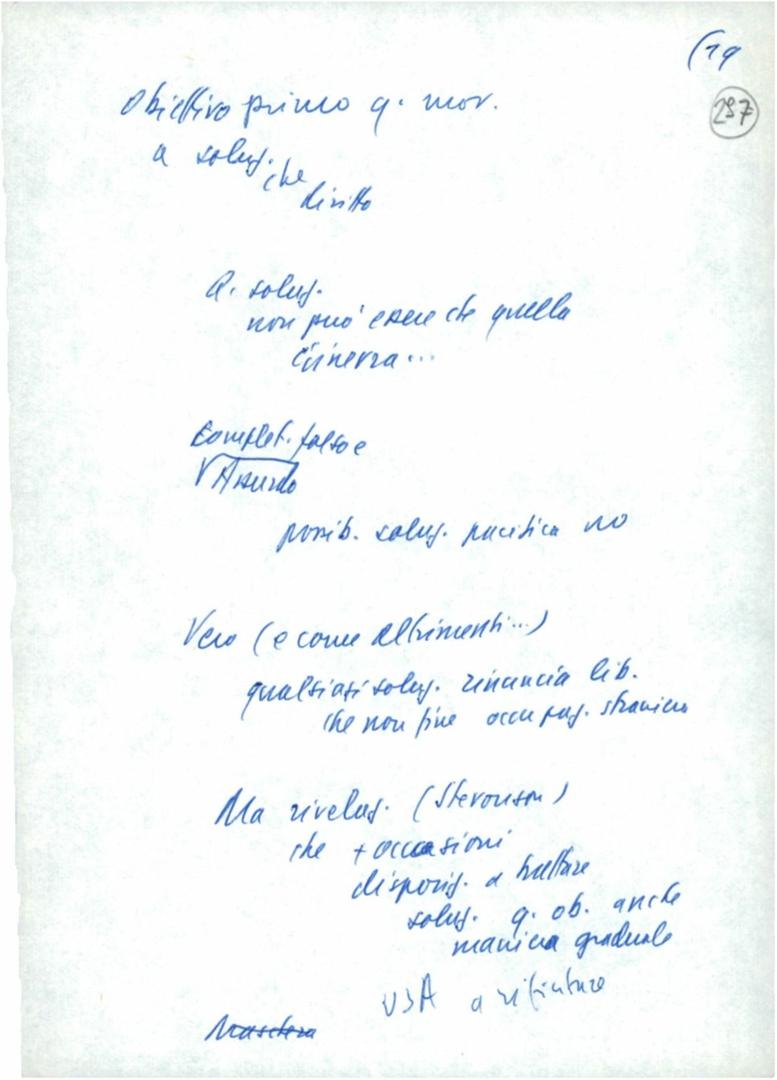 (19
297
Obiettivo primo q. mov.
a soluz. che
diritto
Q. soluz.
non può essere che quella
inversa...
Complet. falso e
Assurdo
possib. soluz. pacifica no
Vero (e come altrimenti...)
qualsiasi soluz. rinuncia lib.
che non fine occupaz. straniera
Ma rivelaz. (Stevonson)
che + occasioni
disposiz. a trattare
soluz. q. ob. anche
maniera graduale
USA a rifiutare
Maschera